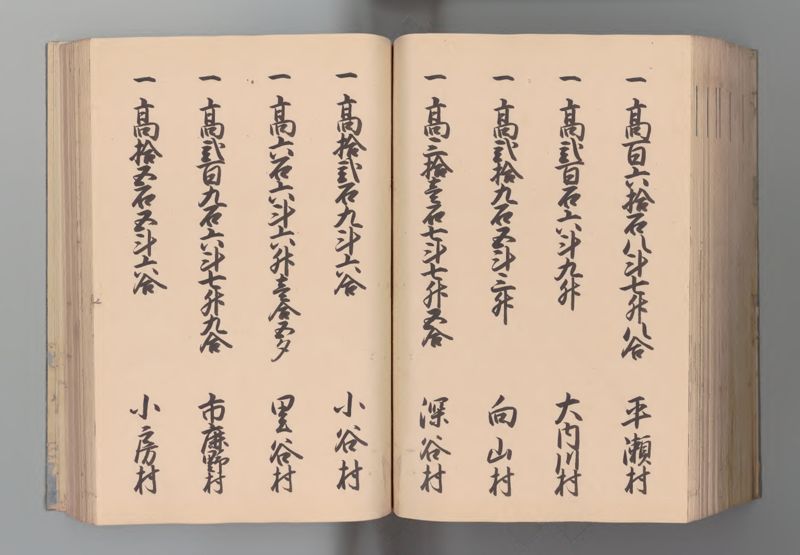 一高百六拾石八斗七升八合 平瀬村
一高弐百石六斗九升 大内川村
一高弐拾九石五斗三升 向山村
一高三拾壱石七斗七升五合 深谷村
一高拾弐石九斗六合 小谷村
一高六石六斗六升壱合五夕 黒谷村
一高弐百九石六斗七升九合 市庭野村
一高拾五石五斗六合 小房村